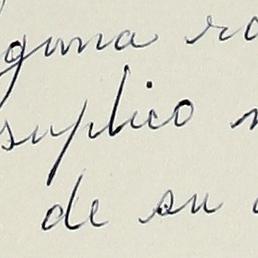 alguna ra
suplico
de su